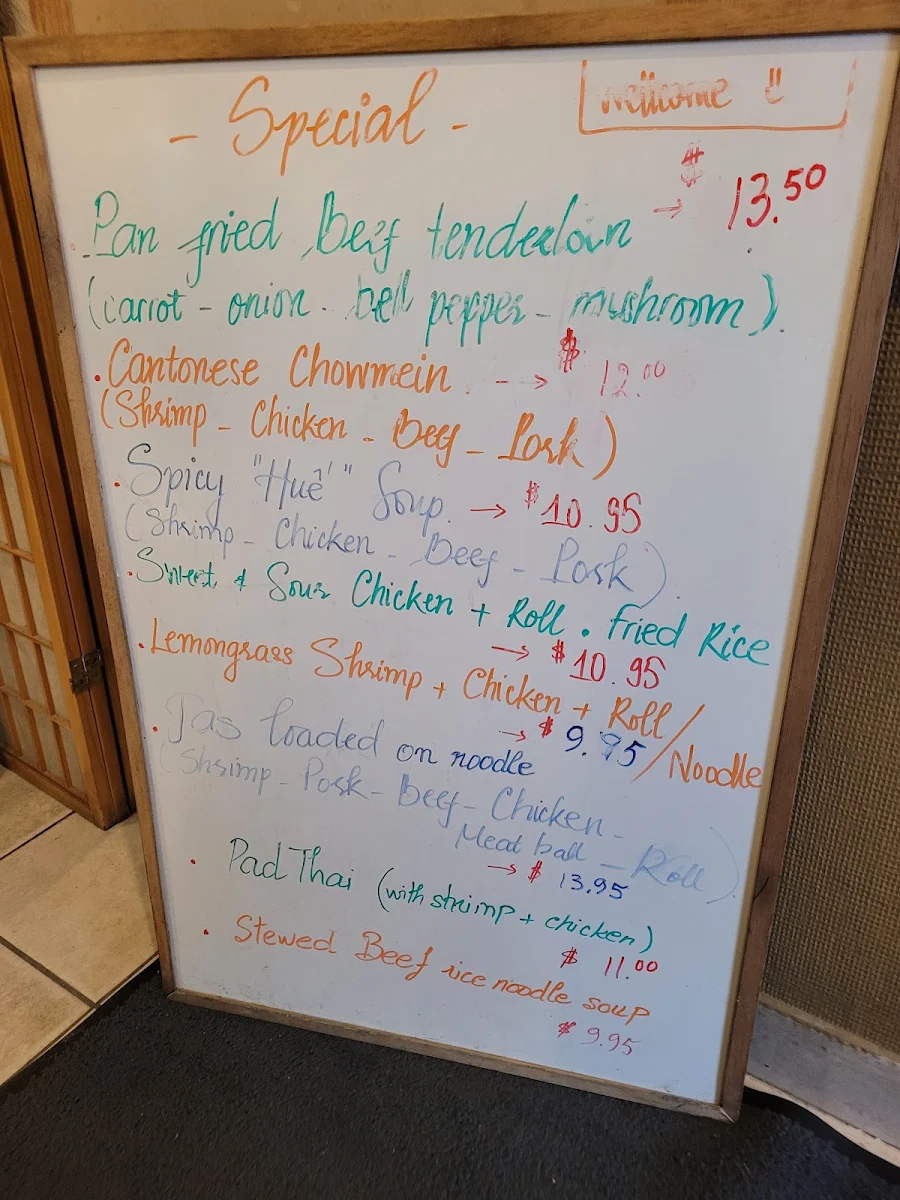 - Special -
Wellcome
$
Pan fried Beef tendeeloin → 13.50
(carrot - onion . bell pepper - mushroom).
. Cantonese Chowmein . --> $ 12.00
(Shrimp - Chicken - Beef - Pork)
. Spicy "Huế" Soup. → $10.95
(Shrimp - Chicken - Beef - Pork).
. Sweet & Sour Chicken + Roll . Fried Rice
→ $10.95
. Lemongrass Shrimp + Chicken + Roll / Noodle
→ $ 9.95
. Tas loaded on noodle
(Shrimp - Pork - Beef - Chicken -
Meat ball - Roll)
→ $ 13.95
. Pad Thai (with shrimp + chicken)
$ 11.00
. Stewed Beef rice noodle soup
$ 9.95